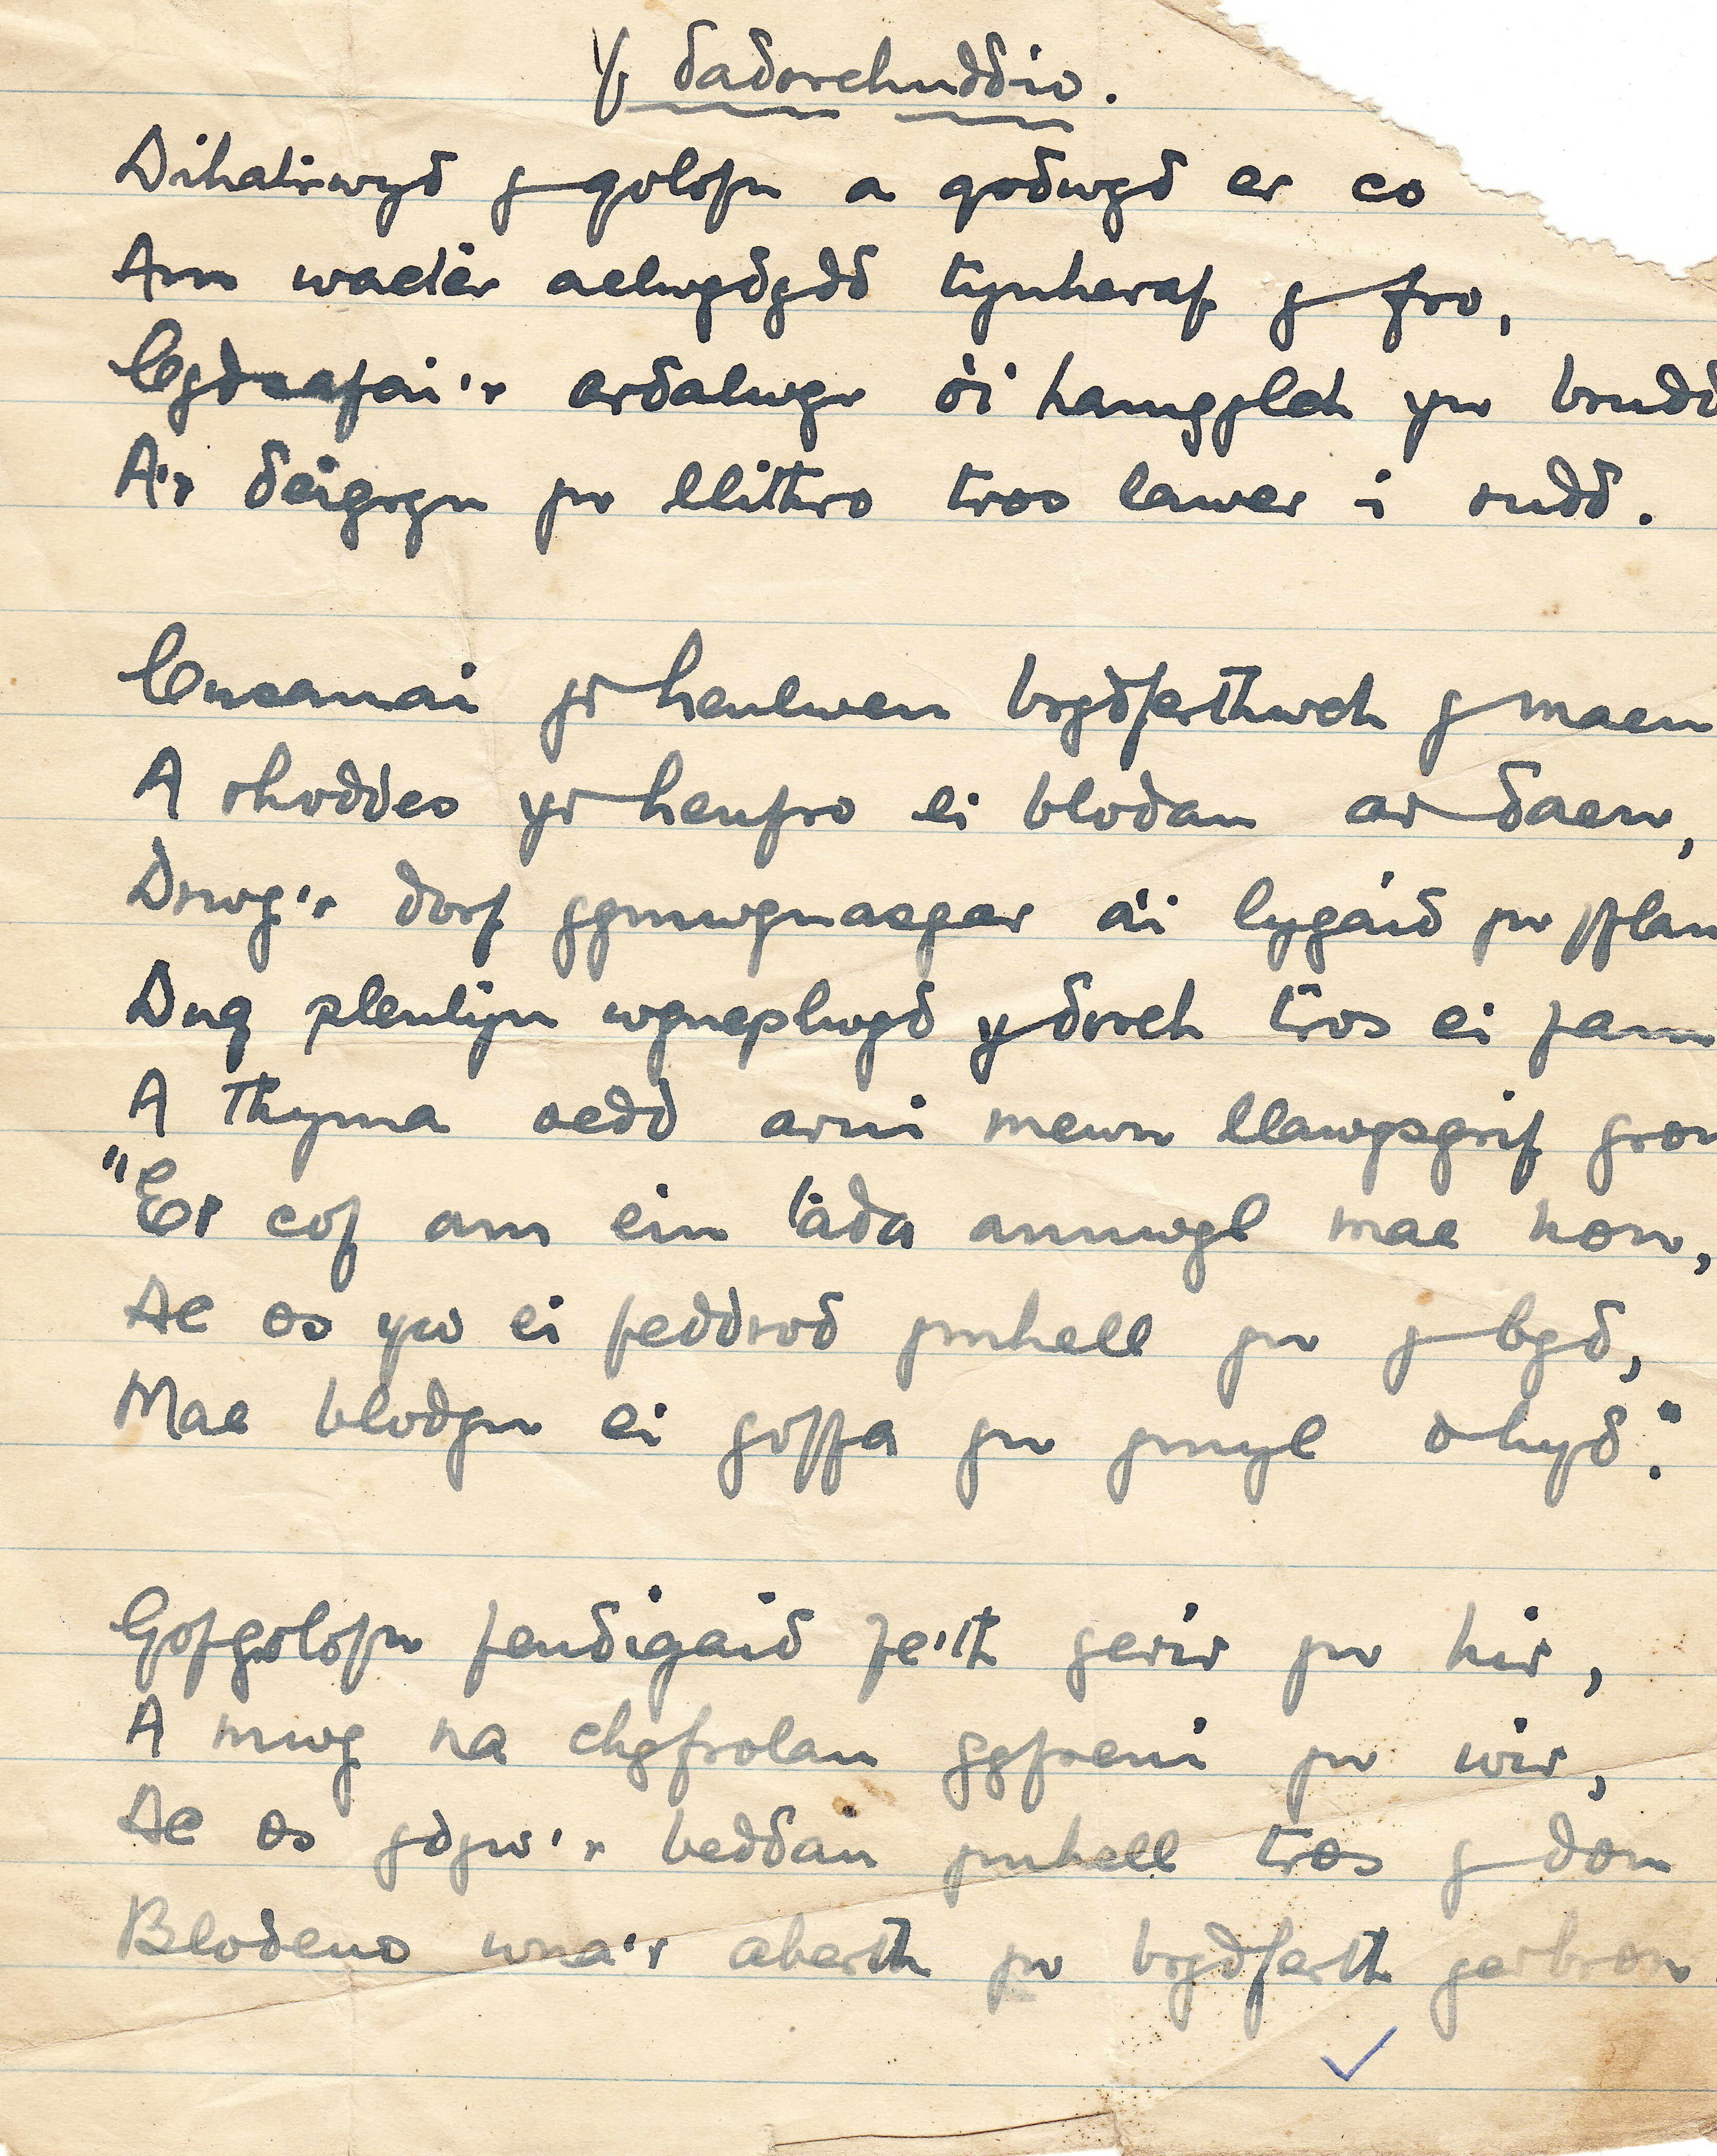 Y dadorchuddio.
Dihatrwyd y golofn a godwyd er co
Am wacter aelwydydd tyneraf y fro,
Cydsafai'r ardalwyr o'i hamgylch yn brudd
A'r deigryn yn llithro tros lawer i rudd.
Cusanai yr heulwen brydferthwch y maen
A rhoddes yr henfro ei blodau ar daen,
Drwy'r dorf gymwynasgar a'i lygaid yn fflam
Dug plentyn wynepllwyd y dorch tros ei fam
A thyma oedd arni mewn llawysgrif gron
"Er cof am ein tada annwyl mae hon,
Ac os yw ei feddrod ymhell yn y byd,
Mae blodyn ei goffa yn ymyl o hyd."
Gofgolofn fendigaid fe'th gerir yn hir,
A mwy na chyfrolau gyfreni yn wir,
Ac os ydyw'r beddau ymhell tros y don
Blodeuo wna'r aberth yn brydferth gerbron